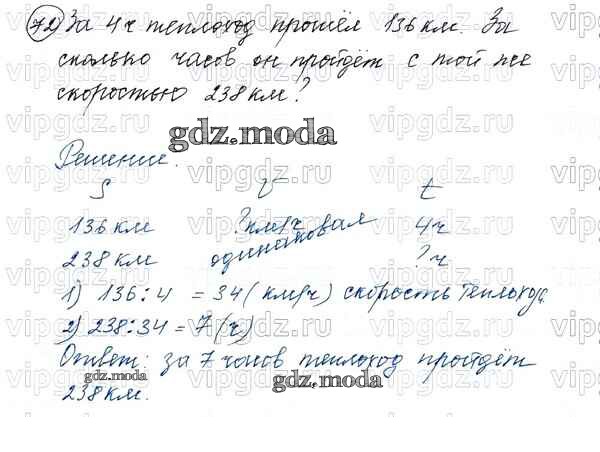 72) За 4 ч теплоход прошёл 136 км. За
сколько часов он пройдёт с той же
скоростью 238 км?
gdz.moda
Решение.
S V t
136 км ? км/ч 4 ч
238 км одинаковая ? ч
1) 136 : 4 = 34 (км/ч) скорость теплохода.
2) 238 : 34 = 7 (ч)
Ответ: за 7 часов теплоход пройдёт
gdz.moda gdz.moda
238 км.